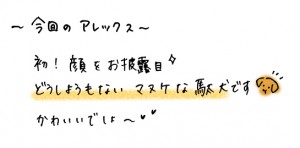 ～今回のアレックス～
初！顔をお披露目
どうしようもないマヌケな駄犬です
かわいいでしょ～